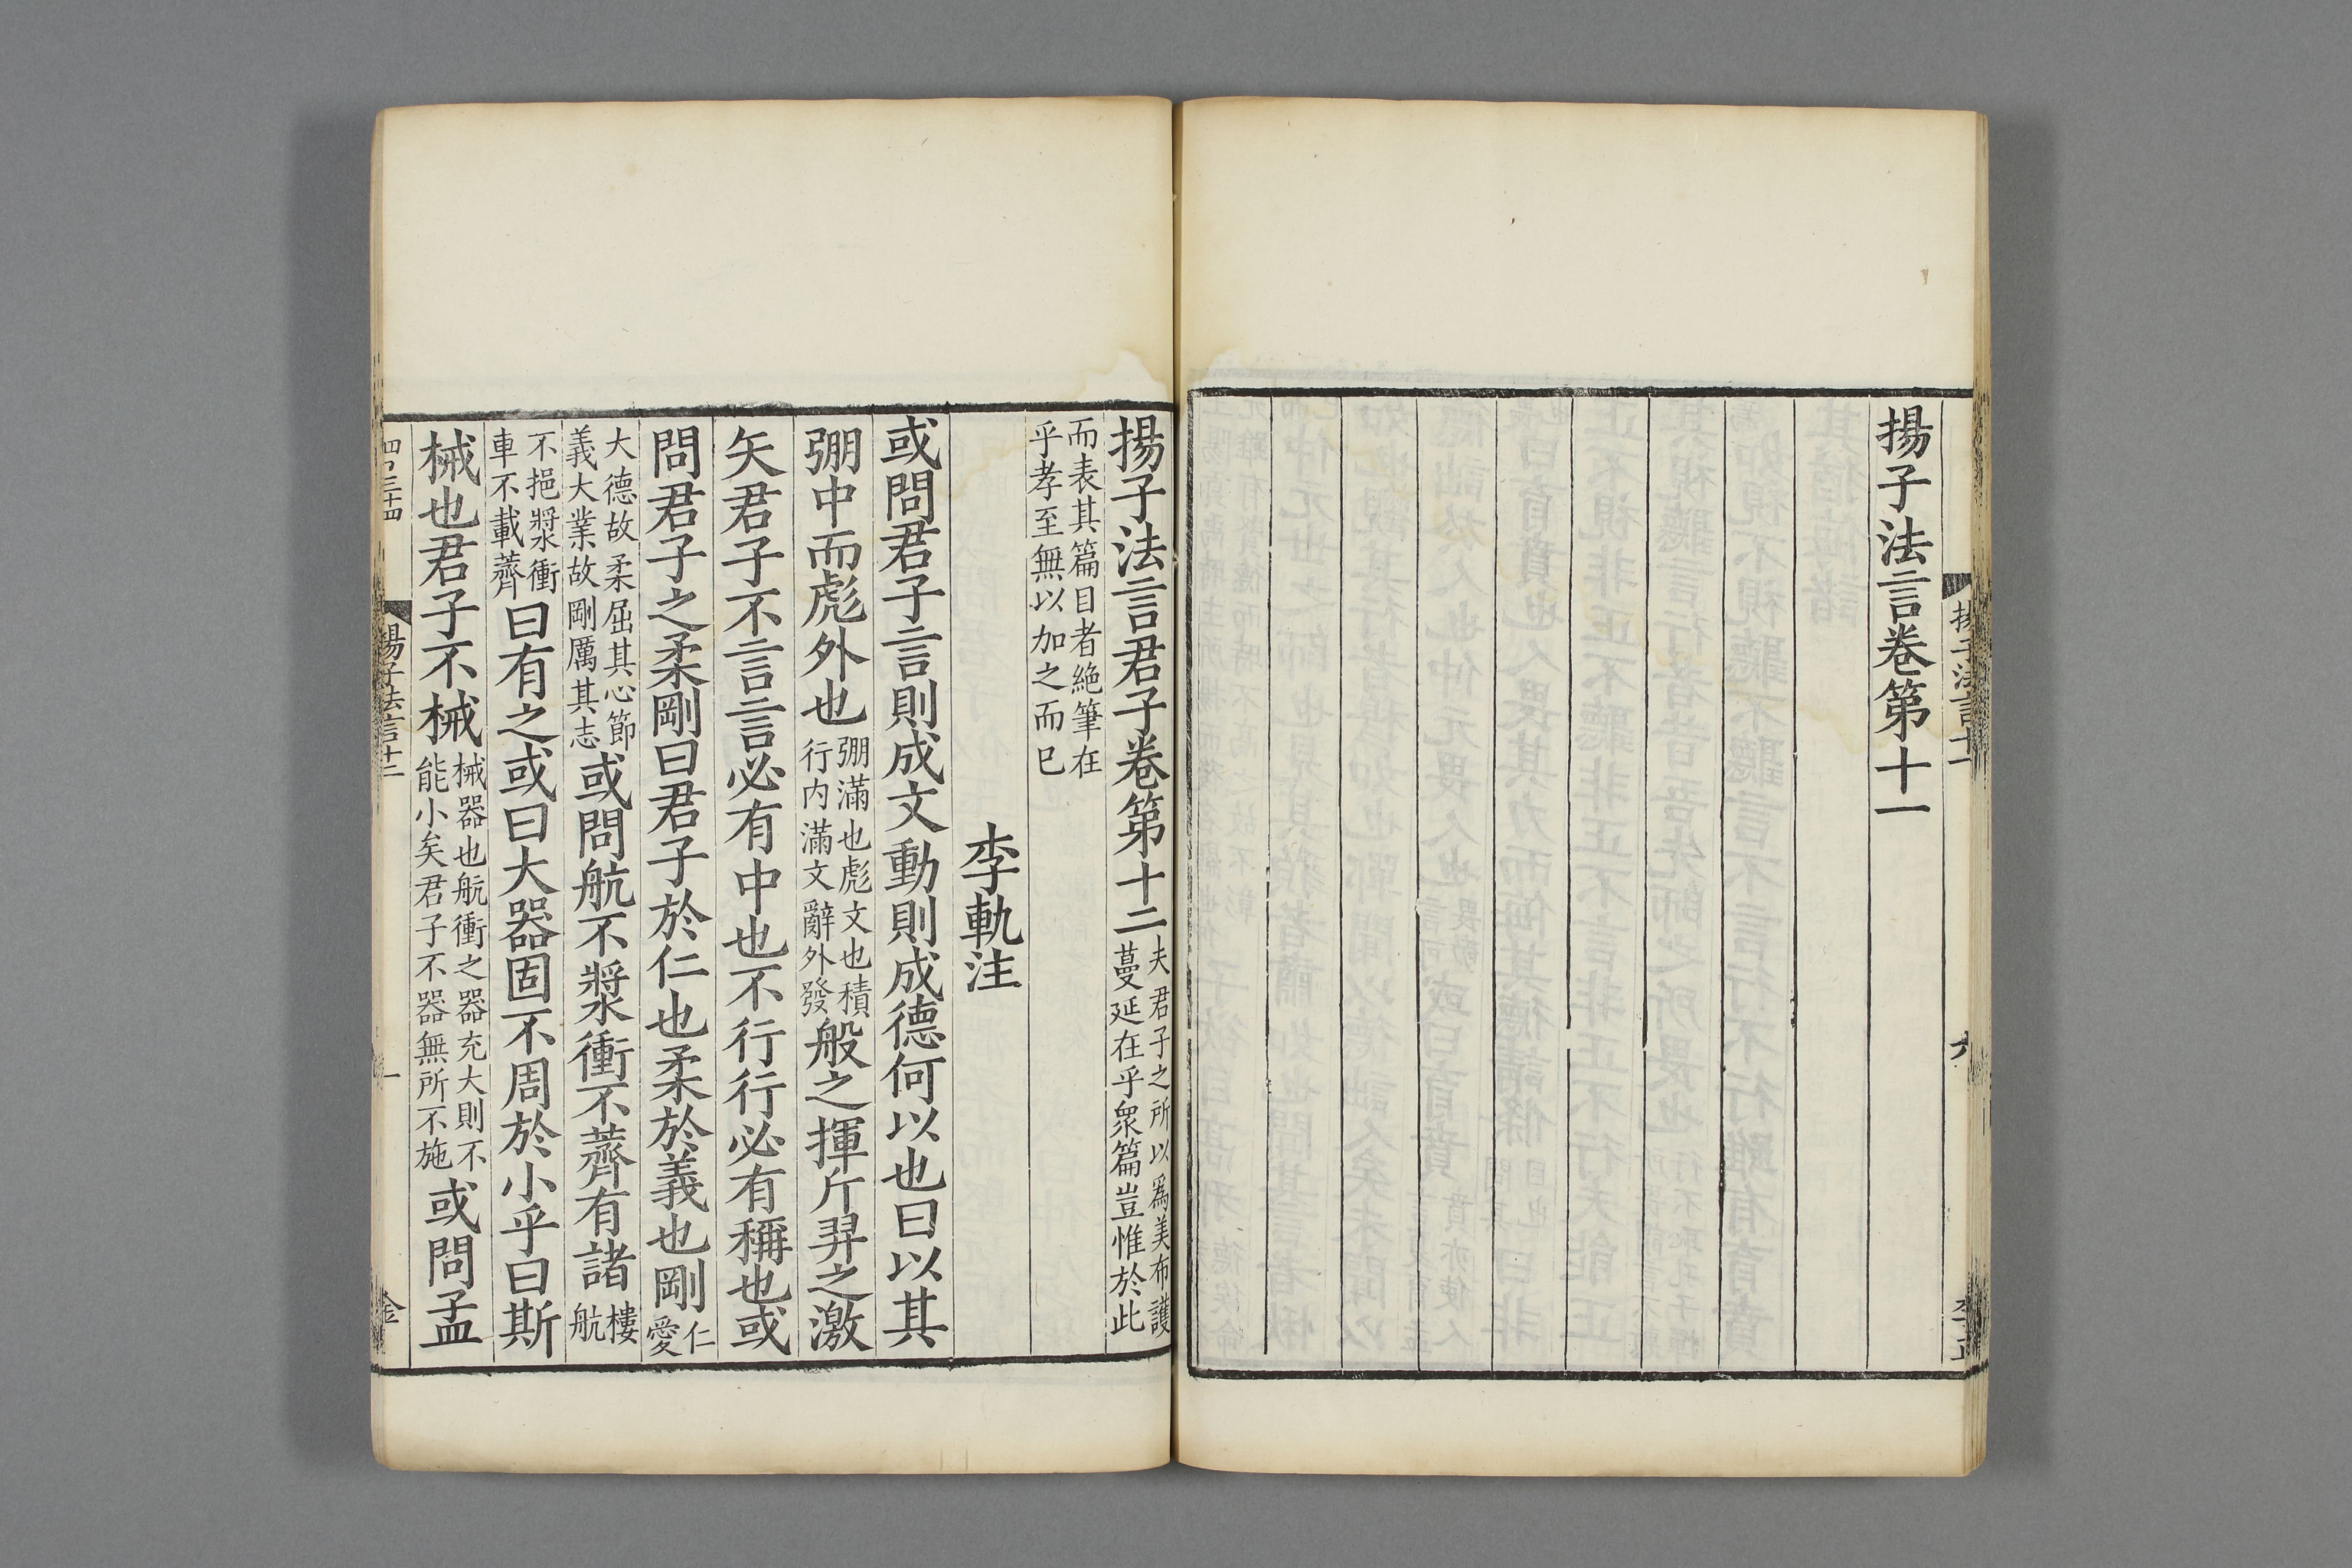 揚子法言卷第十一
揚子法言君子卷第十二夫君子之所以爲美布護蔓延在乎衆篇豈惟於此
而表其篇目者絶筆在乎孝至無以加之而已
李軌注
或問君子言則成文動則成德何以也曰以其
弸中而彪外也弸滿也彪文也積行内滿文辭外發般之揮斤羿之激
矢君子不言言必有中也不行行必有稱也或
問君子之柔剛曰君子於仁也柔於義也剛仁愛
大德故柔屈其心節義大業故剛厲其志或問航不漿衝不薺有諸樓航
不挹漿衝車不載薺曰有之或曰大器固不周於小乎曰斯
械也君子不械械器也航衝之器充大則不能小矣君子不器無所不施或問孟
揚子法言十二
一
金